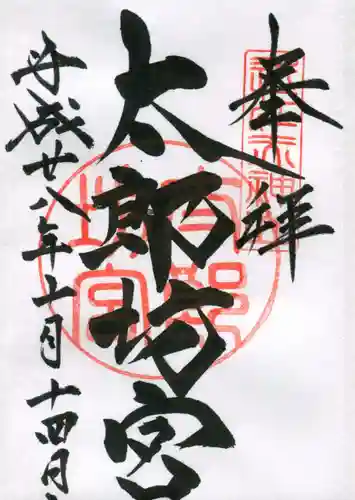 奉拝
太郎坊宮
平成廿八年十月十四日